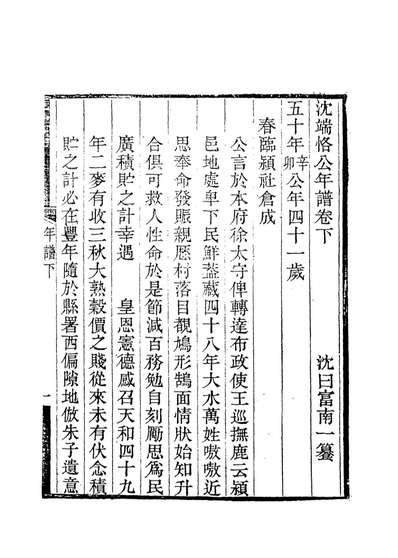 沈端恪公年譜卷下
沈曰富南一纂
五十年辛卯公年四十一歲
春臨潁社倉成
公言於本府徐太守俾轉達布政使王巡撫鹿云潁
邑地處卑下民鮮蓋藏四十八年大水萬姓嗷嗷近
思奉命發賑親歷村落目覩鳩形鵠面情狀始知升
合俱可救人性命於是節減百務勉自刻勵思爲民
廣積貯之計幸遇　皇恩憲德感召天和四十九
年二麥有收三秋大熟穀價之賤從來未有伏念積
貯之計必在豐年隨於縣署西偏隙地倣朱子遺意
年譜下
一